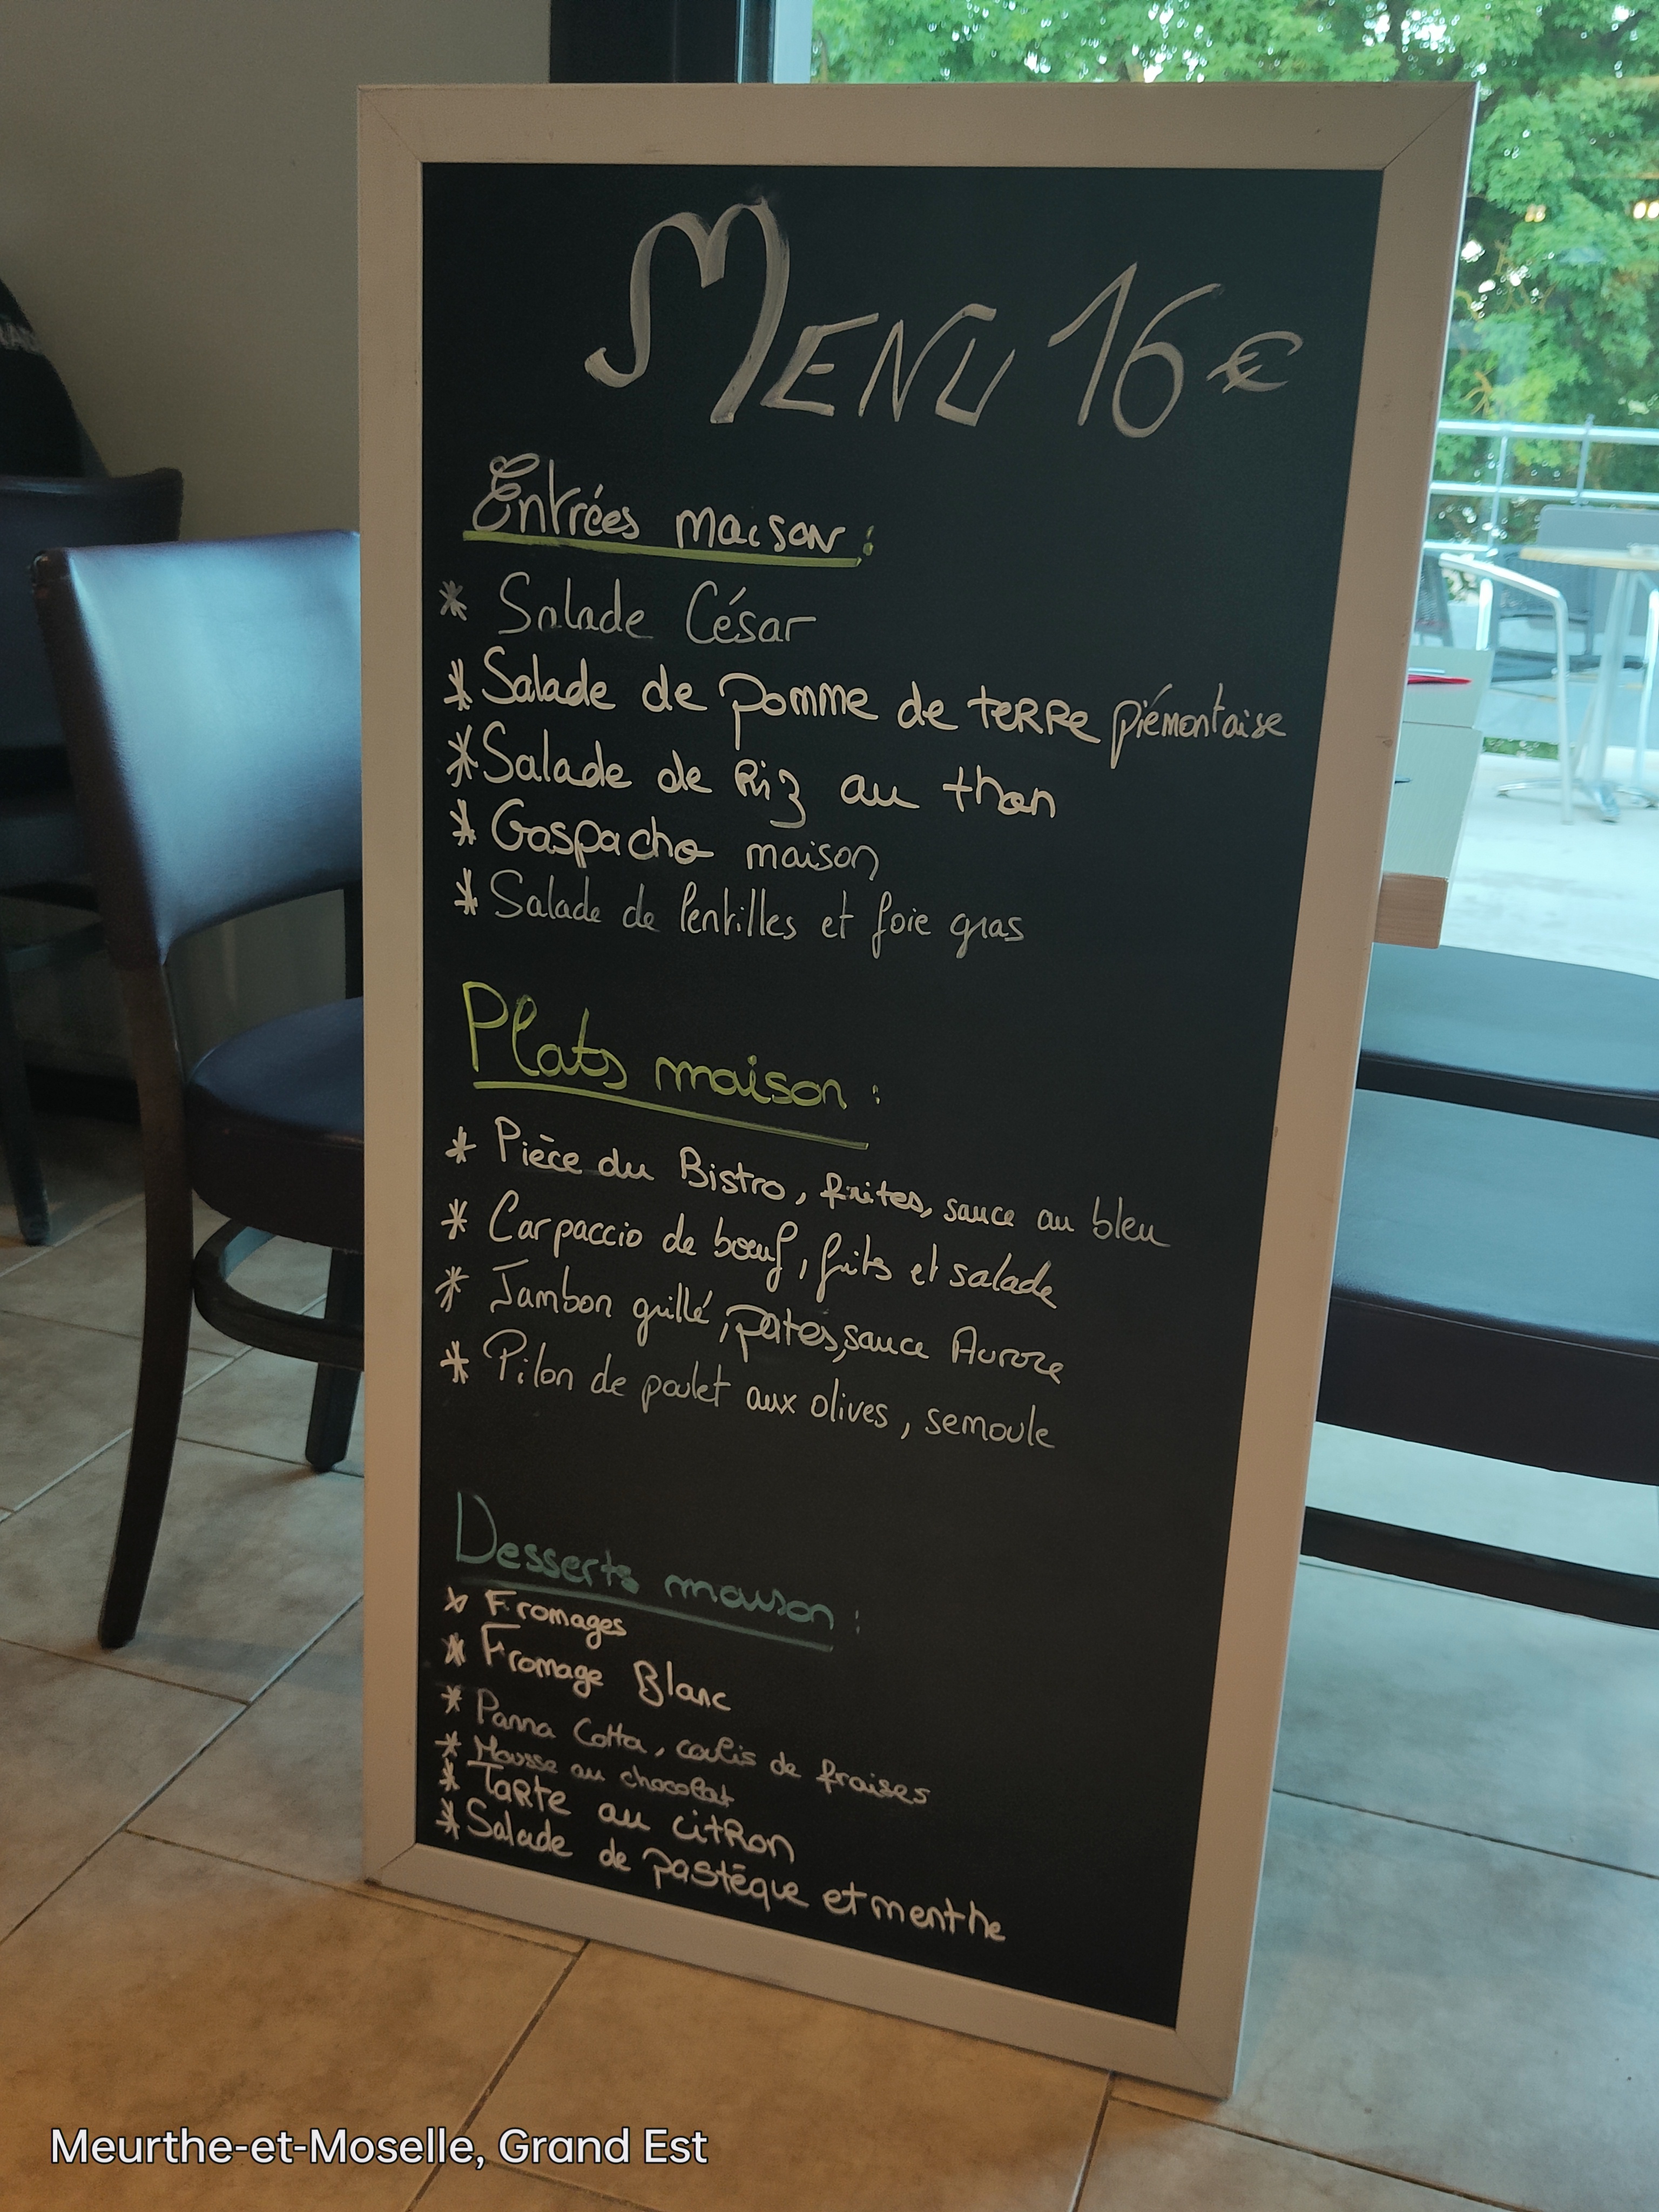 MENU 16 €
Entrées maison :
* Salade César
* Salade de pomme de terre piémontaise
* Salade de Riz au thon
* Gaspacho maison
* Salade de lentilles et foie gras
Plats maison :
* Pièce du Bistro, frites, sauce au bleu
* Carpaccio de bœuf, frits et salade
* Jambon grillé, pates, sauce Aurore
* Pilon de poulet aux olives, semoule
Desserts maison :
* Fromages
* Fromage Blanc
* Panna Cotta, coulis de fraises
* Mousse au chocolat
* Tarte au citron
* Salade de pastèque et menthe
Meurthe-et-Moselle, Grand Est